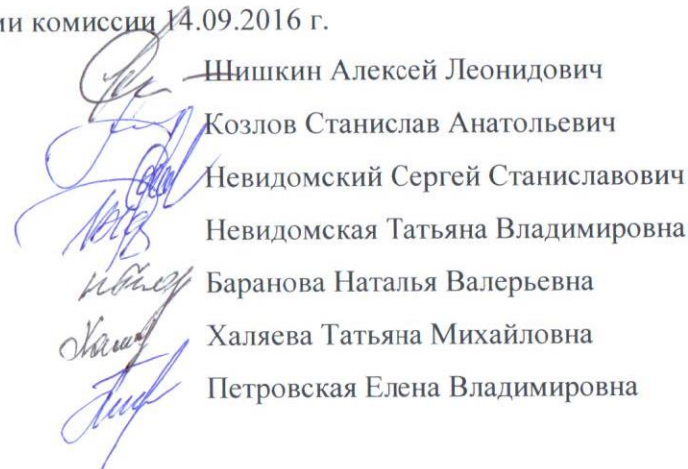 ми комиссии 14.09.2016 г.
Шишкин Алексей Леонидович
Козлов Станислав Анатольевич
Невидомский Сергей Станиславович
Невидомская Татьяна Владимировна
Баранова Наталья Валерьевна
Халяева Татьяна Михайловна
Петровская Елена Владимировна